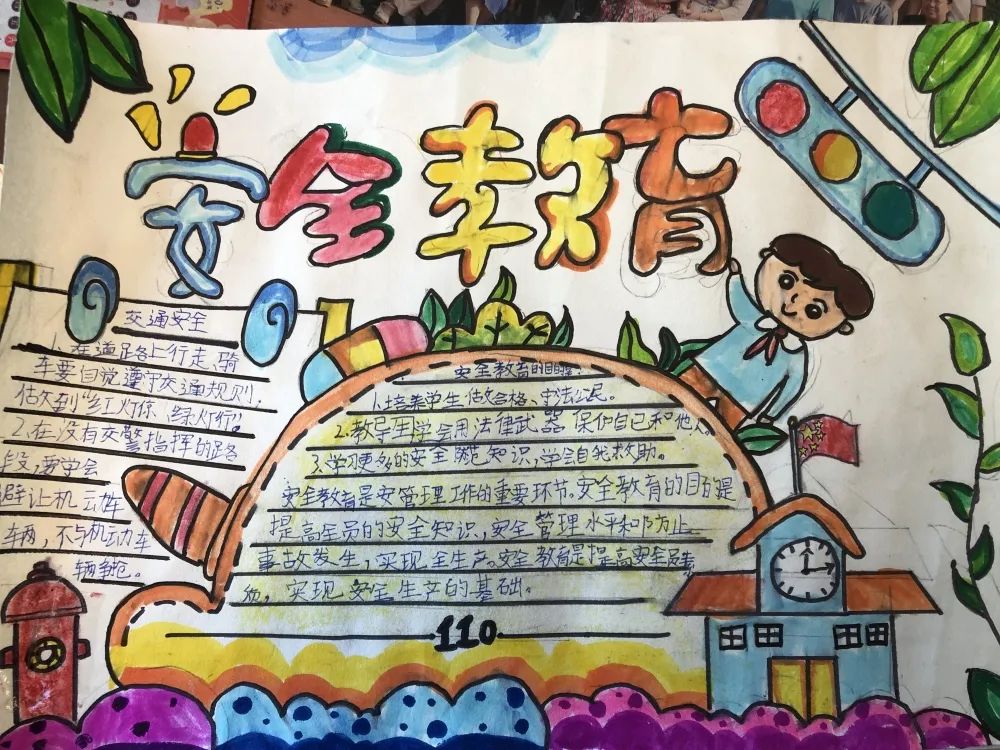 安全教育
交通安全
1.在道路上行走,骑
车要自觉遵守交通规则,
做到“红灯停、绿灯行”。
2.在没有交警指挥的路
段,要学会
避让机动车
车辆,不与机动车
辆争抢。
安全教育的目的:
1.培养学生做合格、守法公民。
2.教导生学会用法律武器保护自己和他人。
3.学习更多的安全防范知识,学会自我救助。
安全教育是安管理工作的重要环节。安全教育的目的是
提高全员的安全知识、安全管理水平和防止
事故发生,实现全生产。安全教育是提高安全
实现安全生产的基础。
110